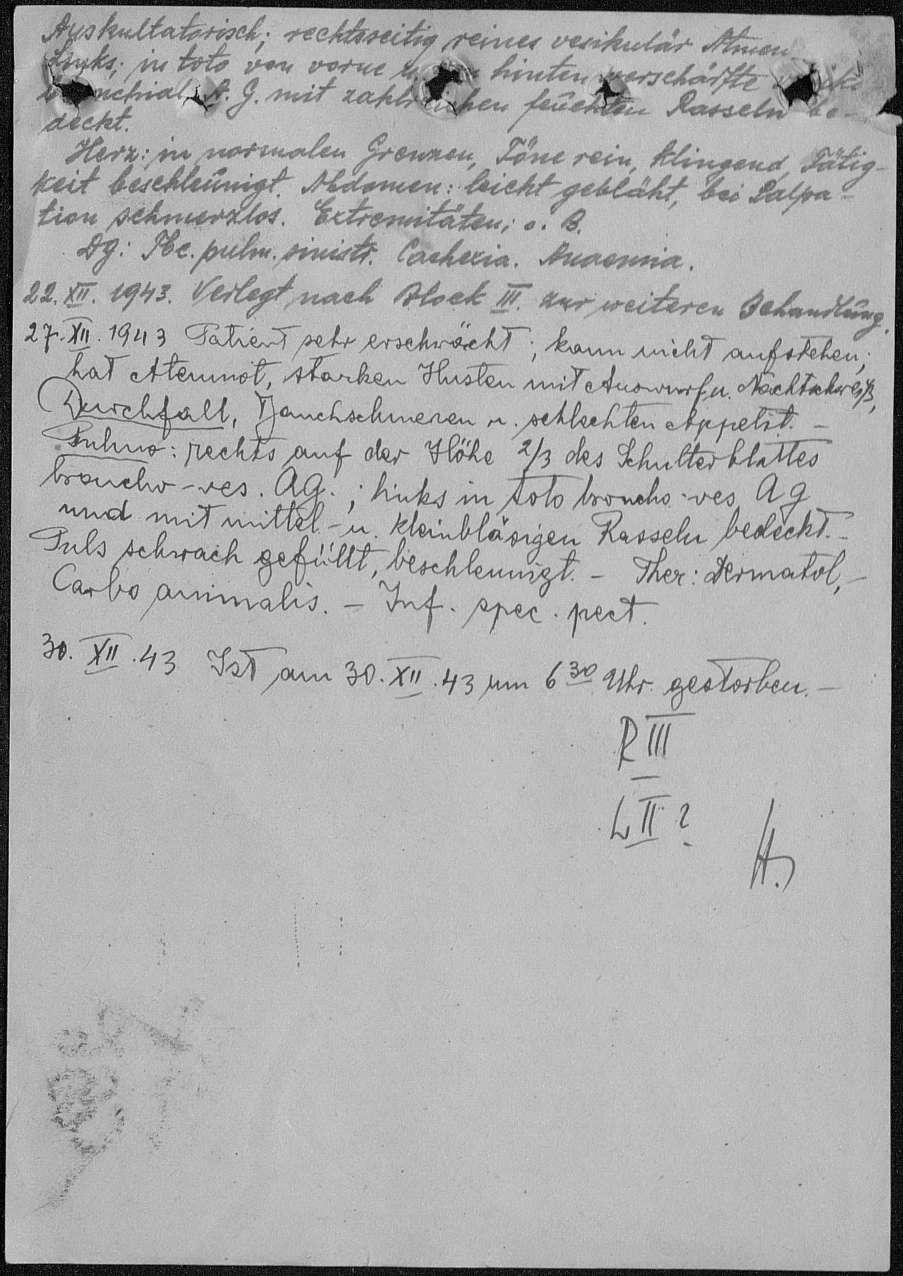 Auskultatorisch; rechtsseitig reines vesikulär Atmen
Links; in toto von vorne hinten verschärfte
A. G. mit zahlreichen feuchten Rasseln be-
deckt.
Herz: in normalen Grenzen, Töne rein, klingend, Tätig-
keit beschleunigt. Abdomen: leicht gebläht, bei Palpa-
tion schmerzlos. Extremitäten: o. B.
Dg: Tbc. pulm. sinistr. Cachexia. Anaemia.
22. XII. 1943. Verlegt nach Block III. zur weiteren Behandlung.
27. XII. 1943 Patient sehr erschwächt; kann nicht aufstehen;
hat Atemnot, starken Husten mit Auswurf u. Nachtschweiß,
Durchfall, Bauchschmerzen u. schlechten Appetit. -
Pulmo: rechts auf der Höhe 2/3 des Schulterblattes
broncho-ves. AG.; links in toto broncho-ves. AG
und mit mittel- u. kleinbläsigen Rasseln bedeckt. -
Puls schwach gefüllt, beschleunigt. - Ther: Dermatol, -
Carbo animalis. - Inf. spec. pect.
30. XII. 43 Ist am 30. XII. 43 um 6 30 Uhr gestorben. -
R III
L II ?
H.